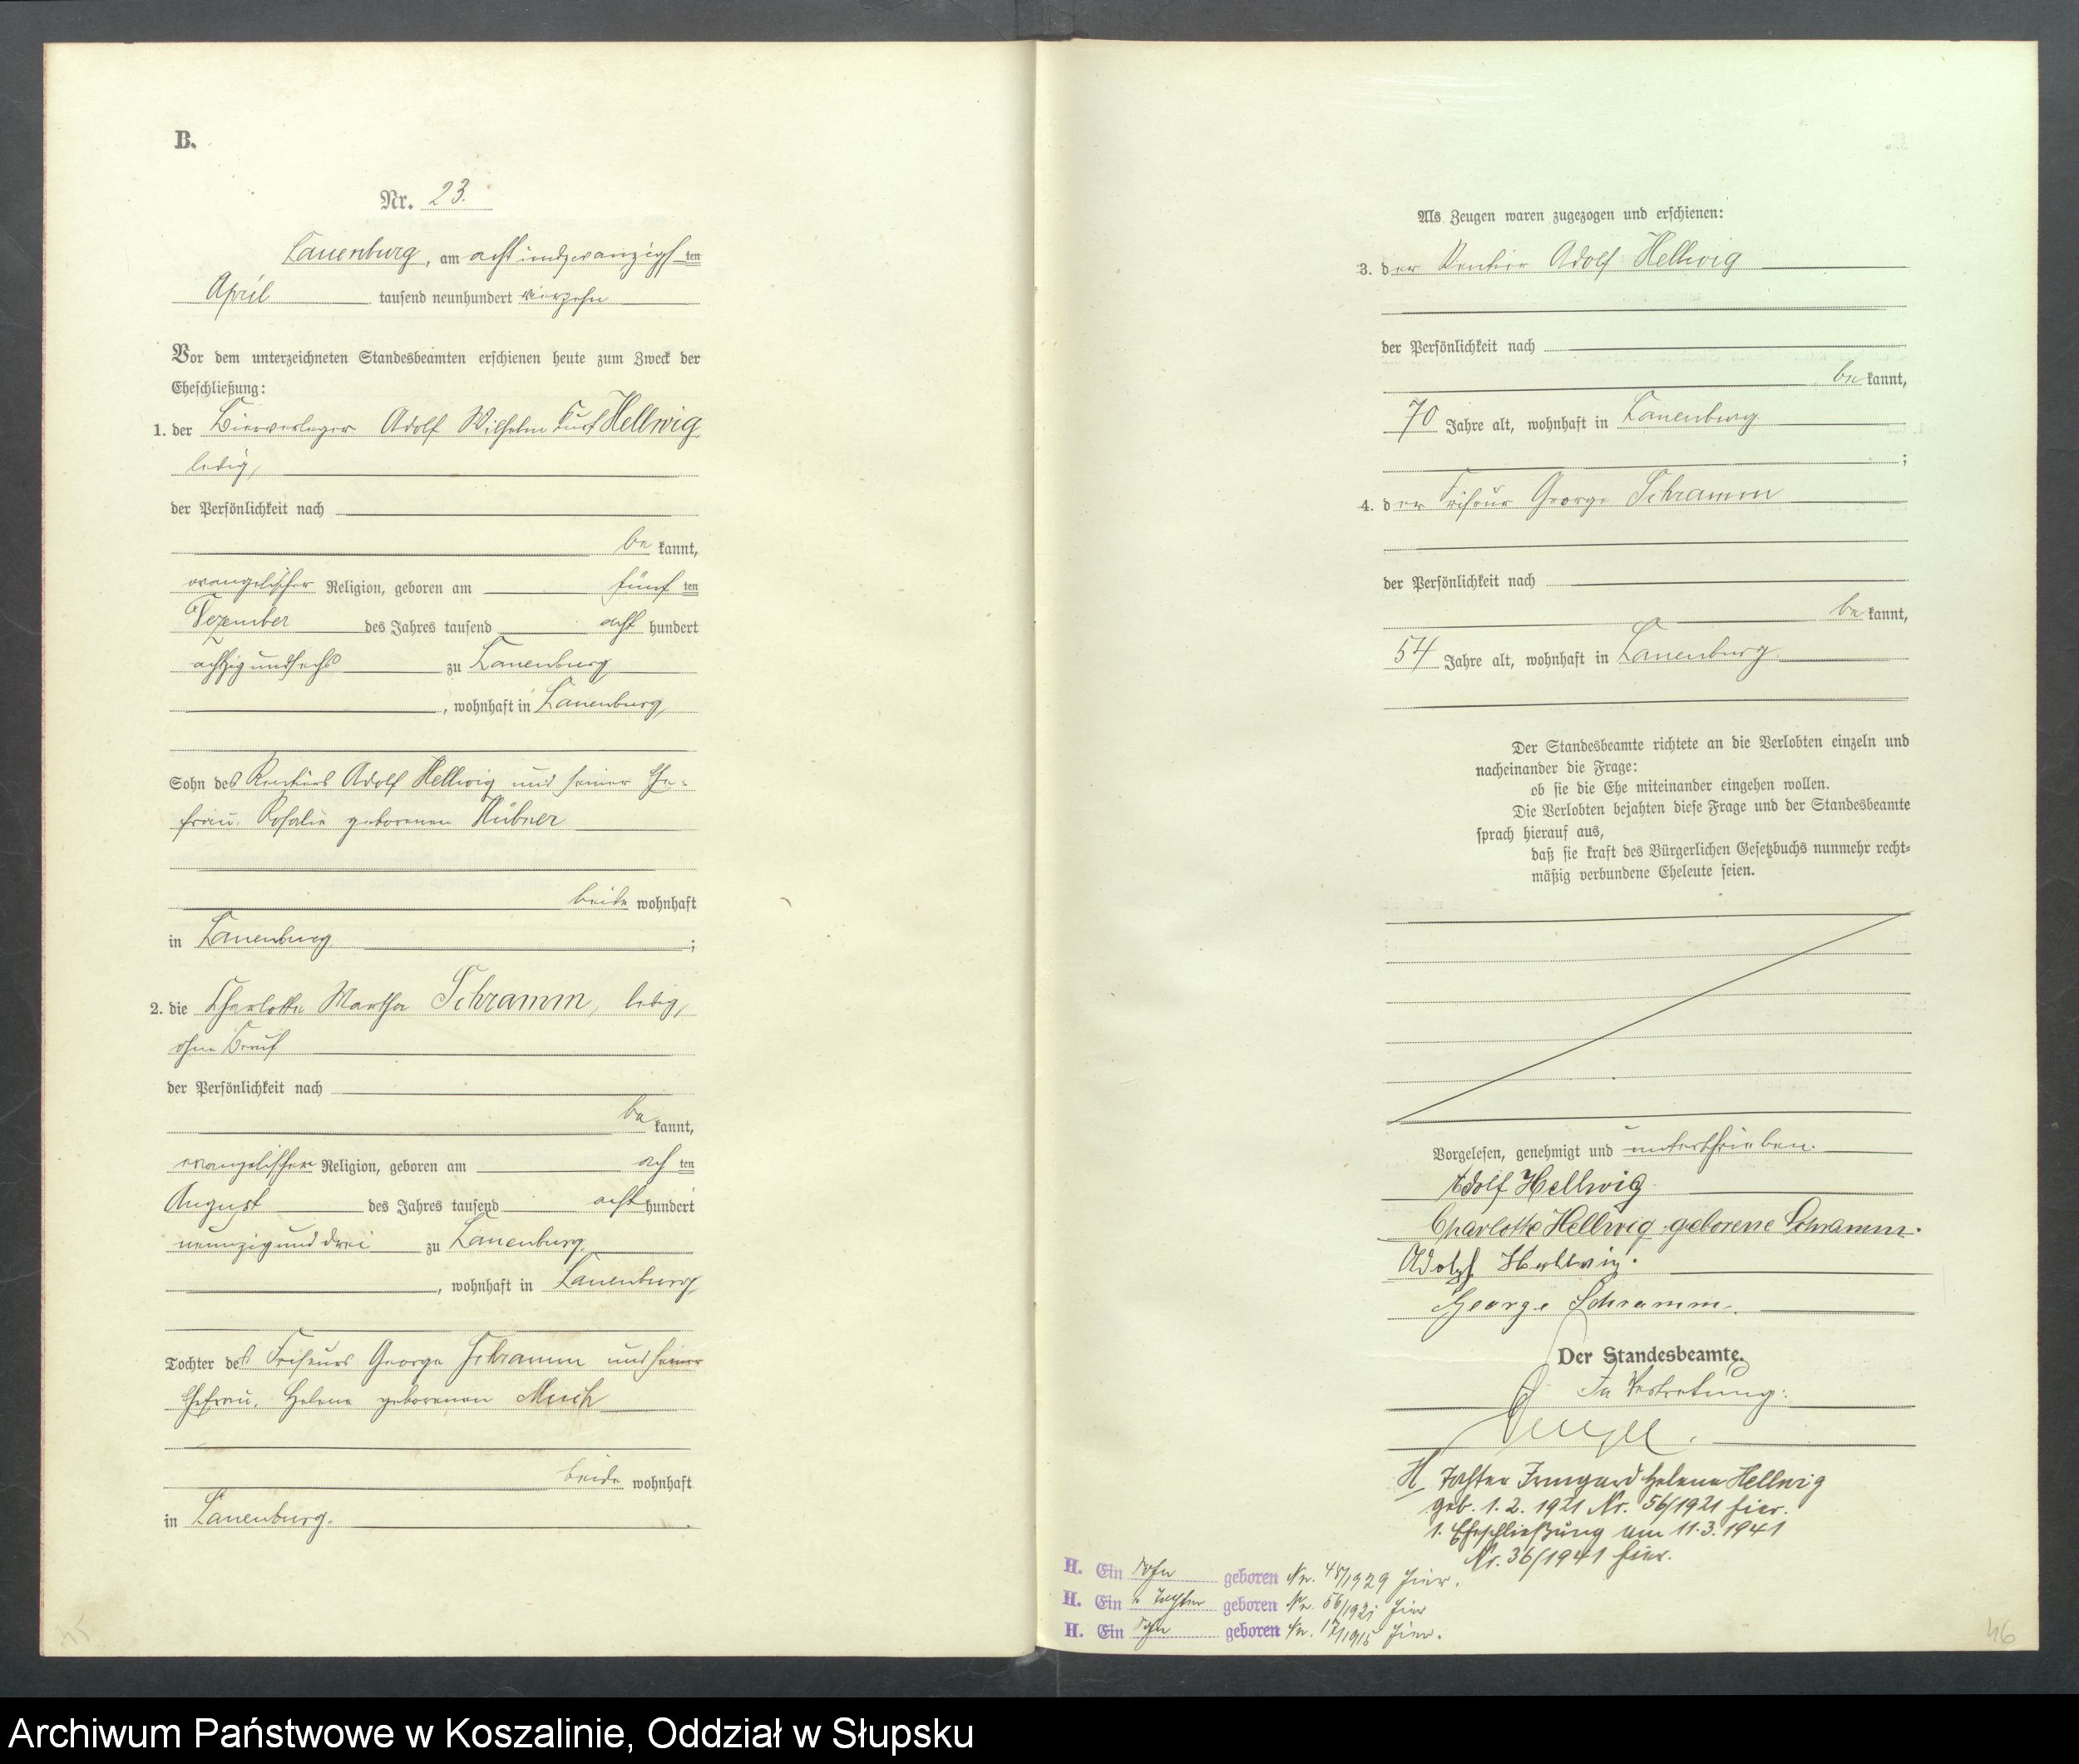 B.
Nr. 23.
Lauenburg, am achtundzwanzigsten
April tausend neunhundert vierzehn
Vor dem unterzeichneten Standesbeamten erschienen heute zum Zweck der
Eheschließung:
1. der Bierverleger Adolf Wilhelm Kurt Hellwig
ledig,
der Persönlichkeit nach
be kannt,
evangelischer Religion, geboren am fünf ten
Dezember des Jahres tausend acht hundert
achtzig und sechs zu Lauenburg
, wohnhaft in Lauenburg
Sohn des Rentiers Adolf Hellwig und seiner Ehe-
frau Rosalie geborenen Hübner
beide wohnhaft
in Lauenburg ;
2. die Charlotte Martha Schramm, ledig,
ohne Beruf
der Persönlichkeit nach
be kannt,
evangelischer Religion, geboren am ach ten
August des Jahres tausend acht hundert
neunzig und drei zu Lauenburg
, wohnhaft in Lauenburg
Tochter des Friseurs George Schramm und seiner
Ehefrau, Helene geborenen Much
beide wohnhaft
in Lauenburg.
45
Als Zeugen waren zugezogen und erschienen:
3. der Rentier Adolf Hellwig
der Persönlichkeit nach
be kannt,
70 Jahre alt, wohnhaft in Lauenburg
;
4. der Friseur George Schramm
der Persönlichkeit nach
be kannt,
54 Jahre alt, wohnhaft in Lauenburg
Der Standesbeamte richtete an die Verlobten einzeln und
nacheinander die Frage:
ob sie die Ehe miteinander eingehen wollen.
Die Verlobten bejahten diese Frage und der Standesbeamte
sprach hierauf aus,
daß sie kraft des Bürgerlichen Gesetzbuchs nunmehr recht-
mäßig verbundene Eheleute seien.
Vorgelesen, genehmigt und unterschrieben.
Adolf Hellwig
Charlotte Hellwig geborene Schramm.
Adolf Hellwig.
George Schramm.
Der Standesbeamte.
In Vertretung:
H. Tochter Irmgard Helene Hellwig
geb. 1. 2. 1921 Nr. 56/1921 hier.
1. Eheschließung am 11.3.1941
Nr. 36/1941 hier.
H. Ein Sohn geboren Nr. /1929 hier.
H. Eine Tochter geboren Nr. 56/1921 hier
H. Ein Sohn geboren Nr. 17/1915 hier.
46
Archiwum Państwowe w Koszalinie, Oddział w Słupsku